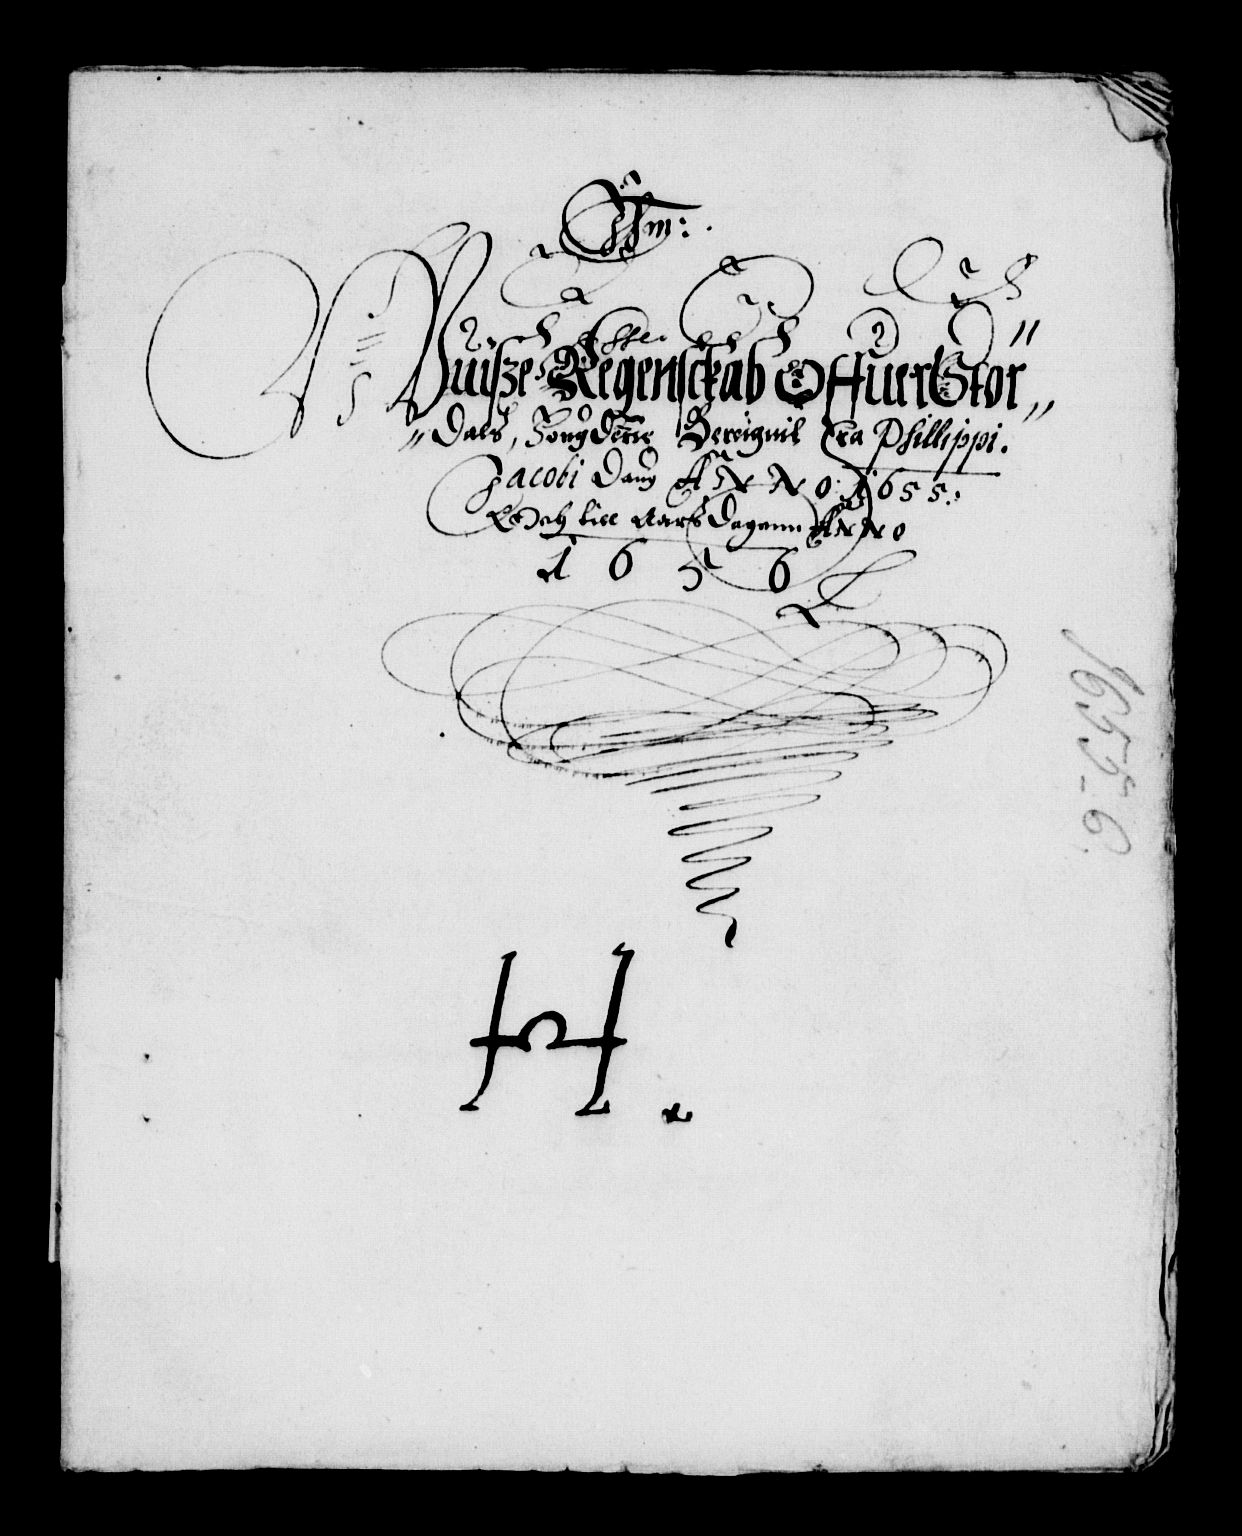 Wiisze Regenschab Offuer Stor„
„Dals, Fougderie Bereignit fra Phillippi.
Jacobi Daug ANNO: 1655:
Och till Aarß Dagenn ANNO
1656
H
1655-6.